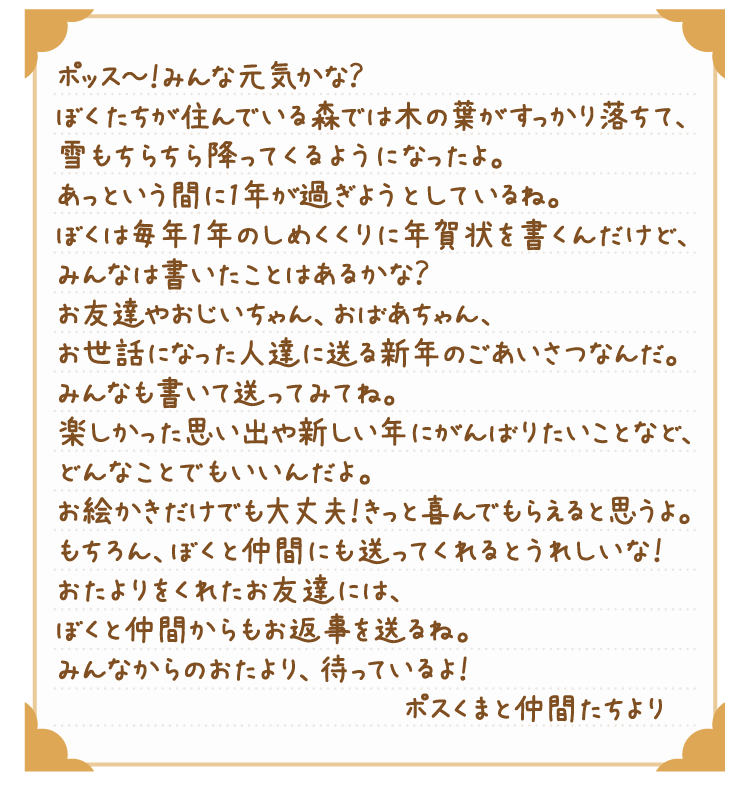 ポッス〜!みんな元気かな?
ぼくたちが住んでいる森では木の葉がすっかり落ちて、
雪もちらちら降ってくるようになったよ。
あっという間に1年が過ぎようとしているね。
ぼくは毎年1年のしめくくりに年賀状を書くんだけど、
みんなは書いたことはあるかな?
お友達やおじいちゃん、おばあちゃん、
お世話になった人達に送る新年のごあいさつなんだ。
みんなも書いて送ってみてね。
楽しかった思い出や新しい年にがんばりたいことなど、
どんなことでもいいんだよ。
お絵かきだけでも大丈夫!きっと喜んでもらえると思うよ。
もちろん、ぼくと仲間にも送ってくれるとうれしいな!
おたよりをくれたお友達には、
ぼくと仲間からもお返事を送るね。
みんなからのおたより、待っているよ!
ポスくまと仲間たちより